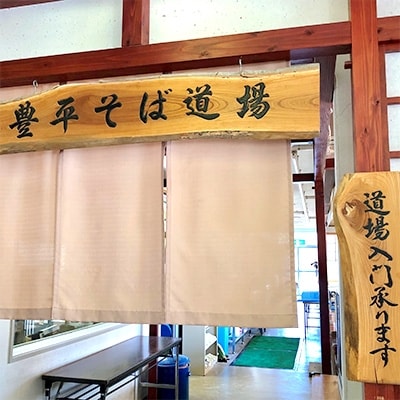 豊平そば道場
道場入門承ります